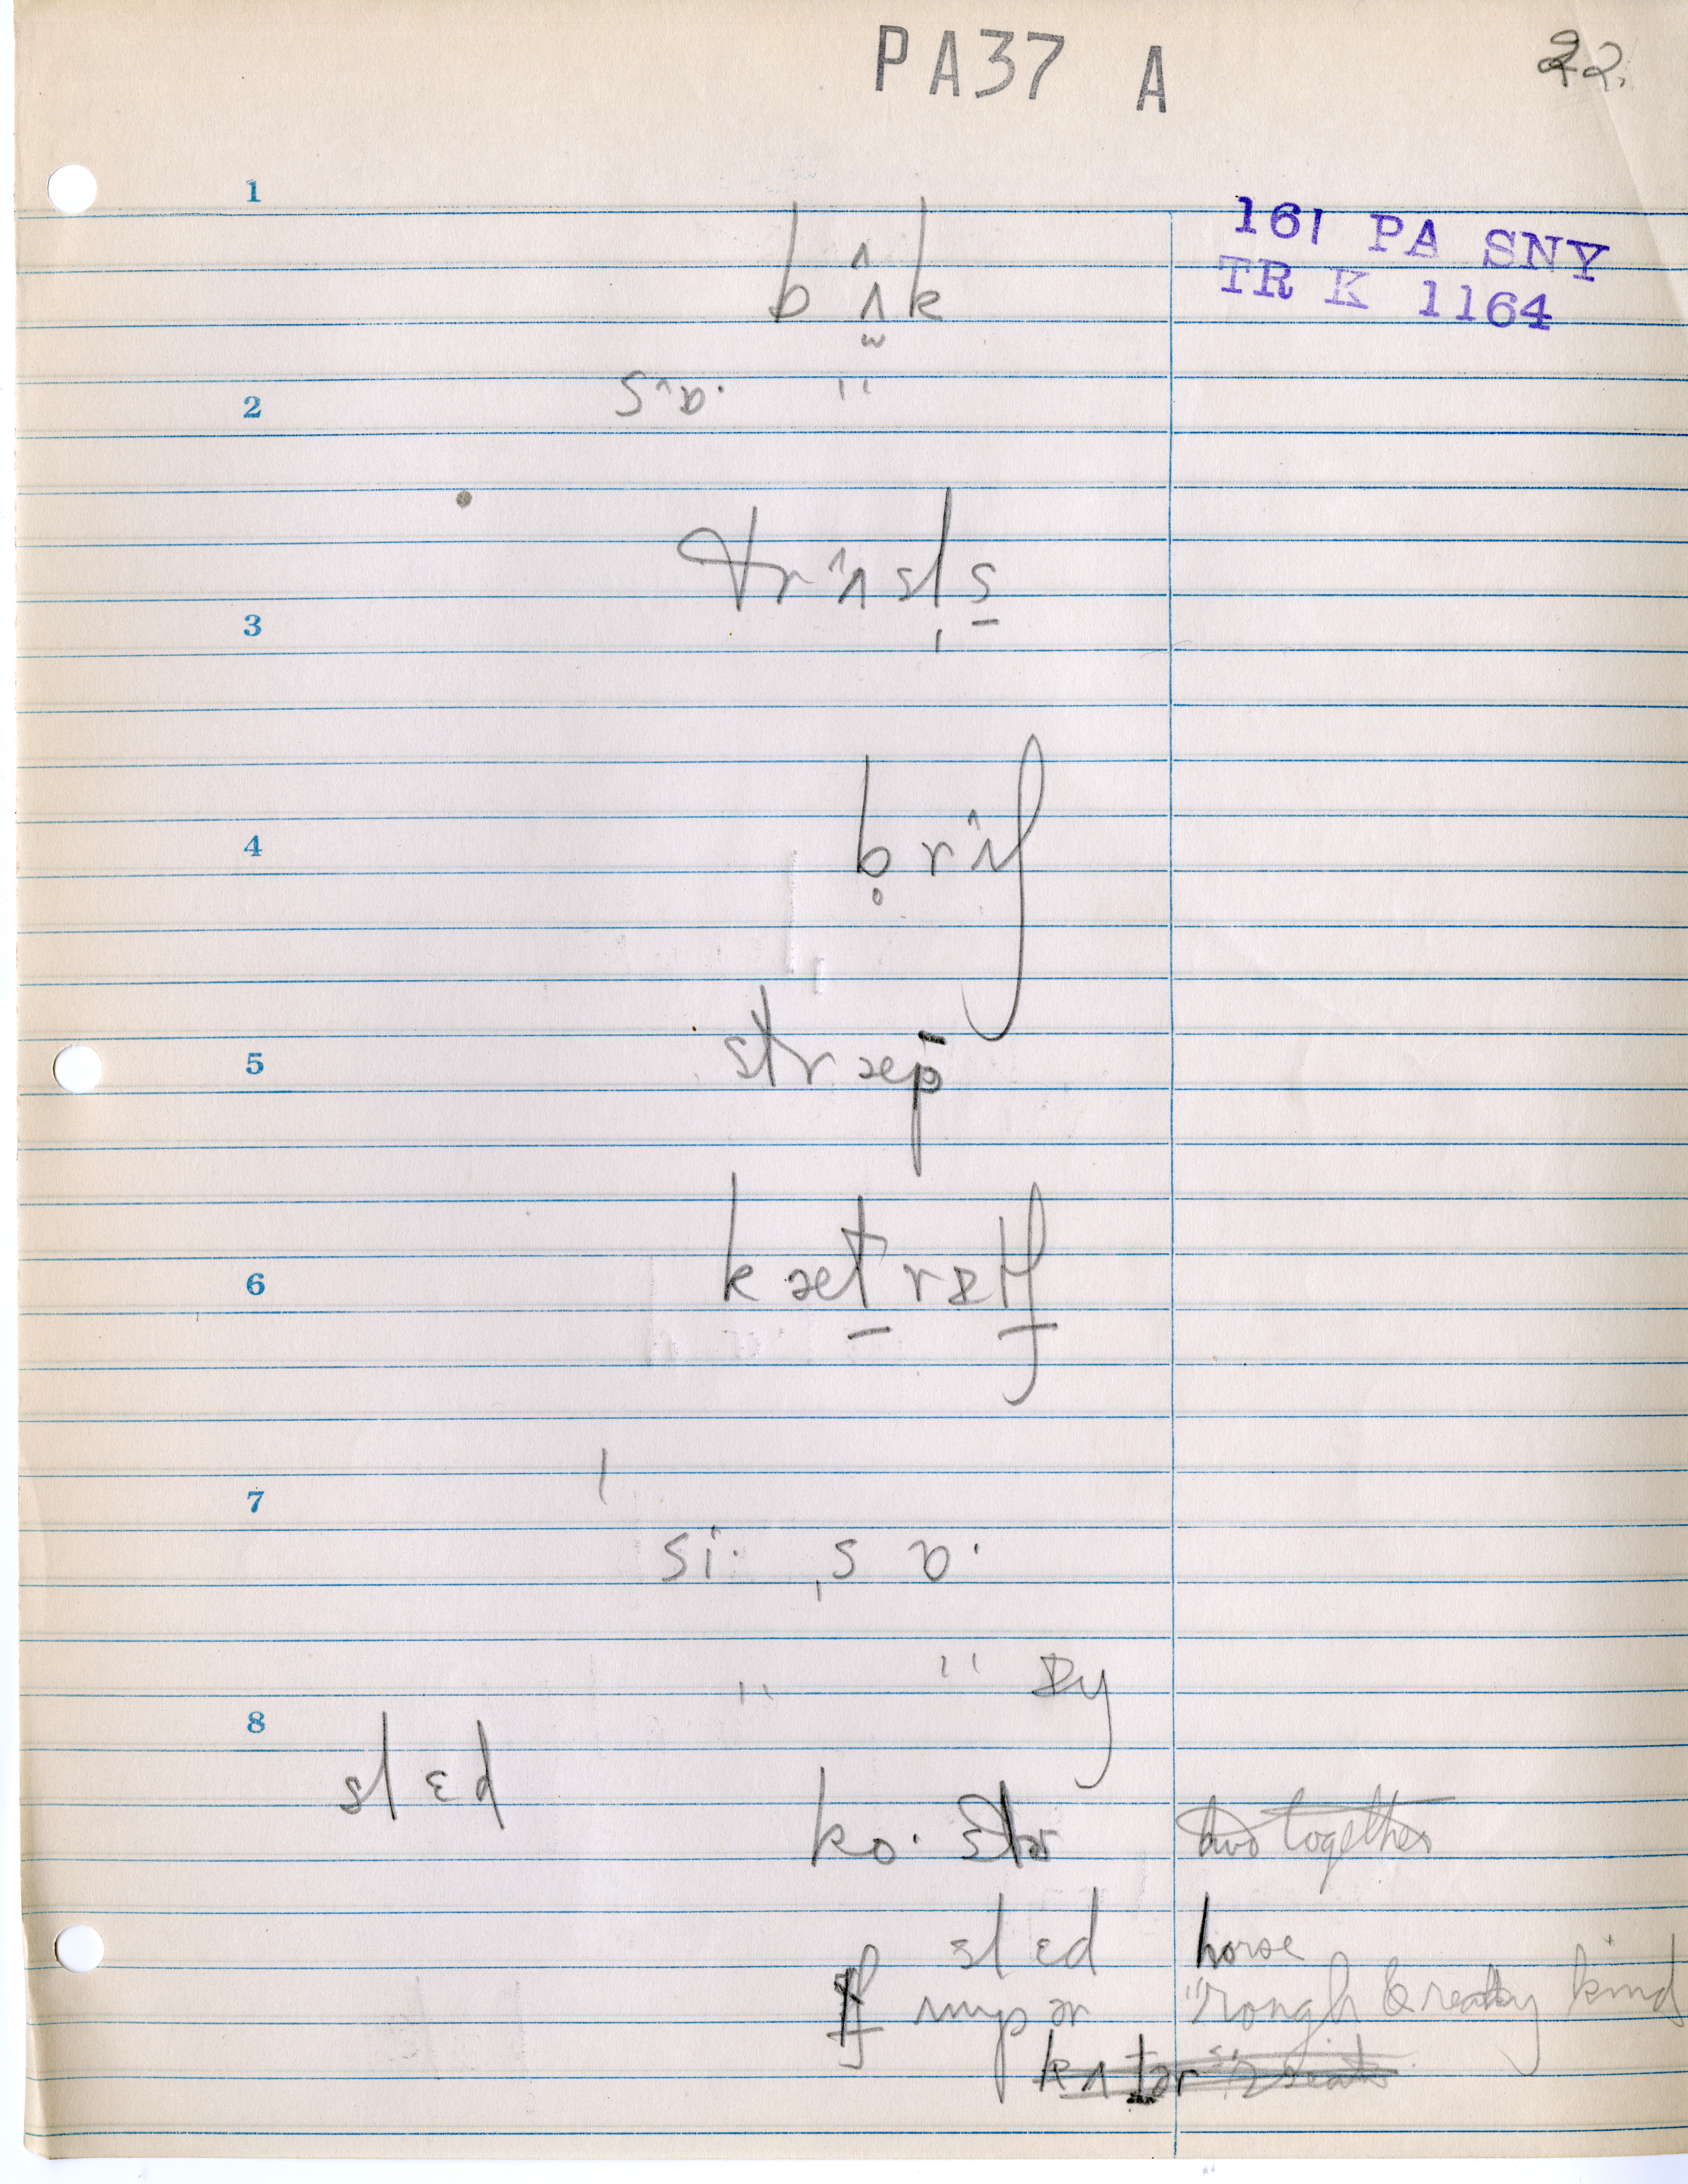 PA37 A
22.
161 PA SNY
TR K 1164
1
bʌ̂k
2
sɒ· "
trʌ̂sl̩s̱
3
4
b̥rʌ̂ʃ
5
stræp
6
kæṯræṯʃ
7
si· ˌsɒ·
" " ɒy
8
slɛd
ko·stər two together
slɛd horse
"rough & ready kind
kʌtər